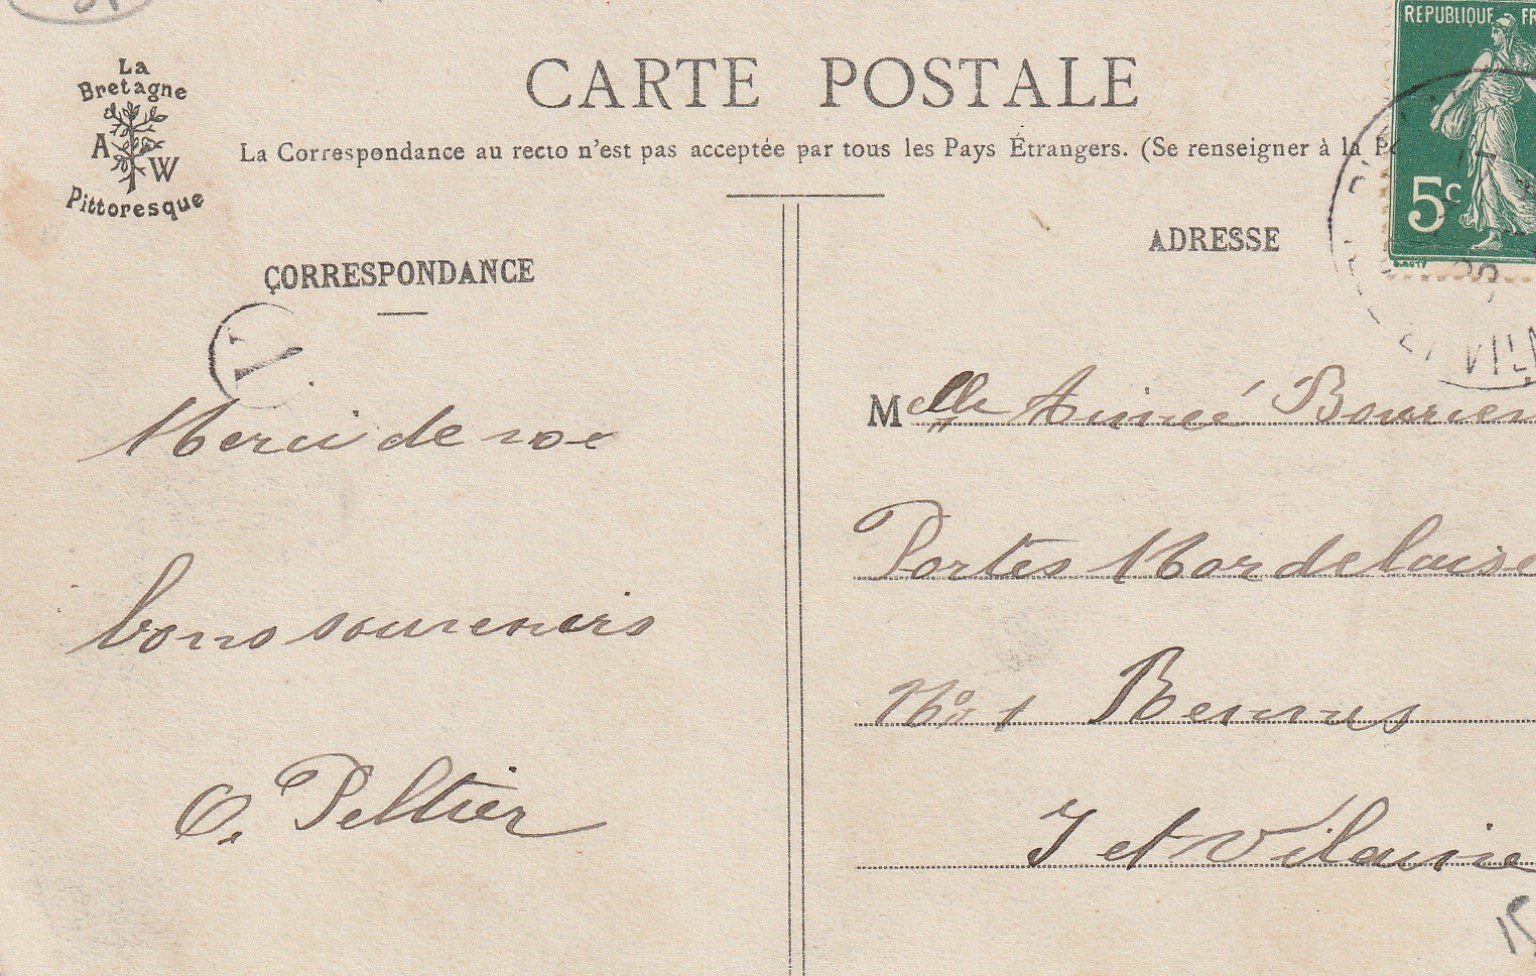 La
Bretagne
A W
Pittoresque
CARTE POSTALE
La Correspondance au recto n'est pas acceptée par tous les Pays Étrangers. (Se renseigner à la
REPUBLIQUE FR
5c
CORRESPONDANCE
ADRESSE
1
Merci de vos
bons souvenirs
O. Peltier
Melle Aimeé
Portes Mordelaise
No 1 Rennes
I et Vilaine